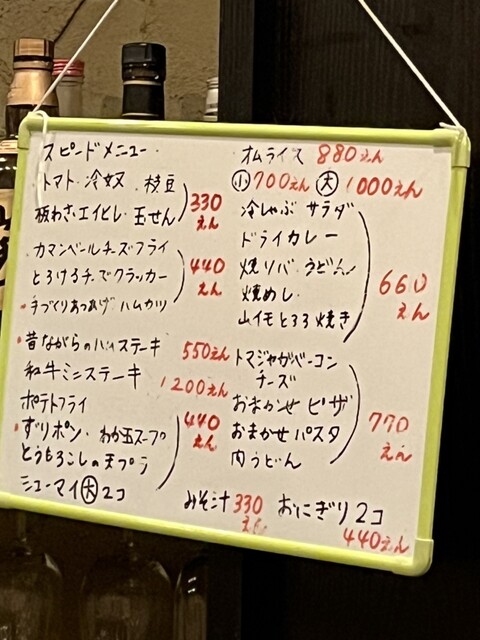 スピードメニュー
トマト 冷奴 枝豆
板わさ エイヒレ 玉せん
330
えん
カマンベールチーズフライ
とろけるチーズクラッカー
手づくりあつあげ ハムカツ
440
えん
昔ながらのハムステーキ 550えん
和牛ミニステーキ 1200えん
ポテトフライ
ずりポン・わか玉スープ
とうもろこしの天プラ
シューマイ大2コ
440
えん
オムライス 880えん
小700えん 大1000えん
冷しゃぶ サラダ
ドライカレー
焼リバ うどん
焼めし
山イモとろろ焼き
660
えん
トマジャガベーコン
チーズ
おまかせ ピザ
おまかせ パスタ
肉うどん
770
えん
みそ汁 330
えん
おにぎり2コ
440えん